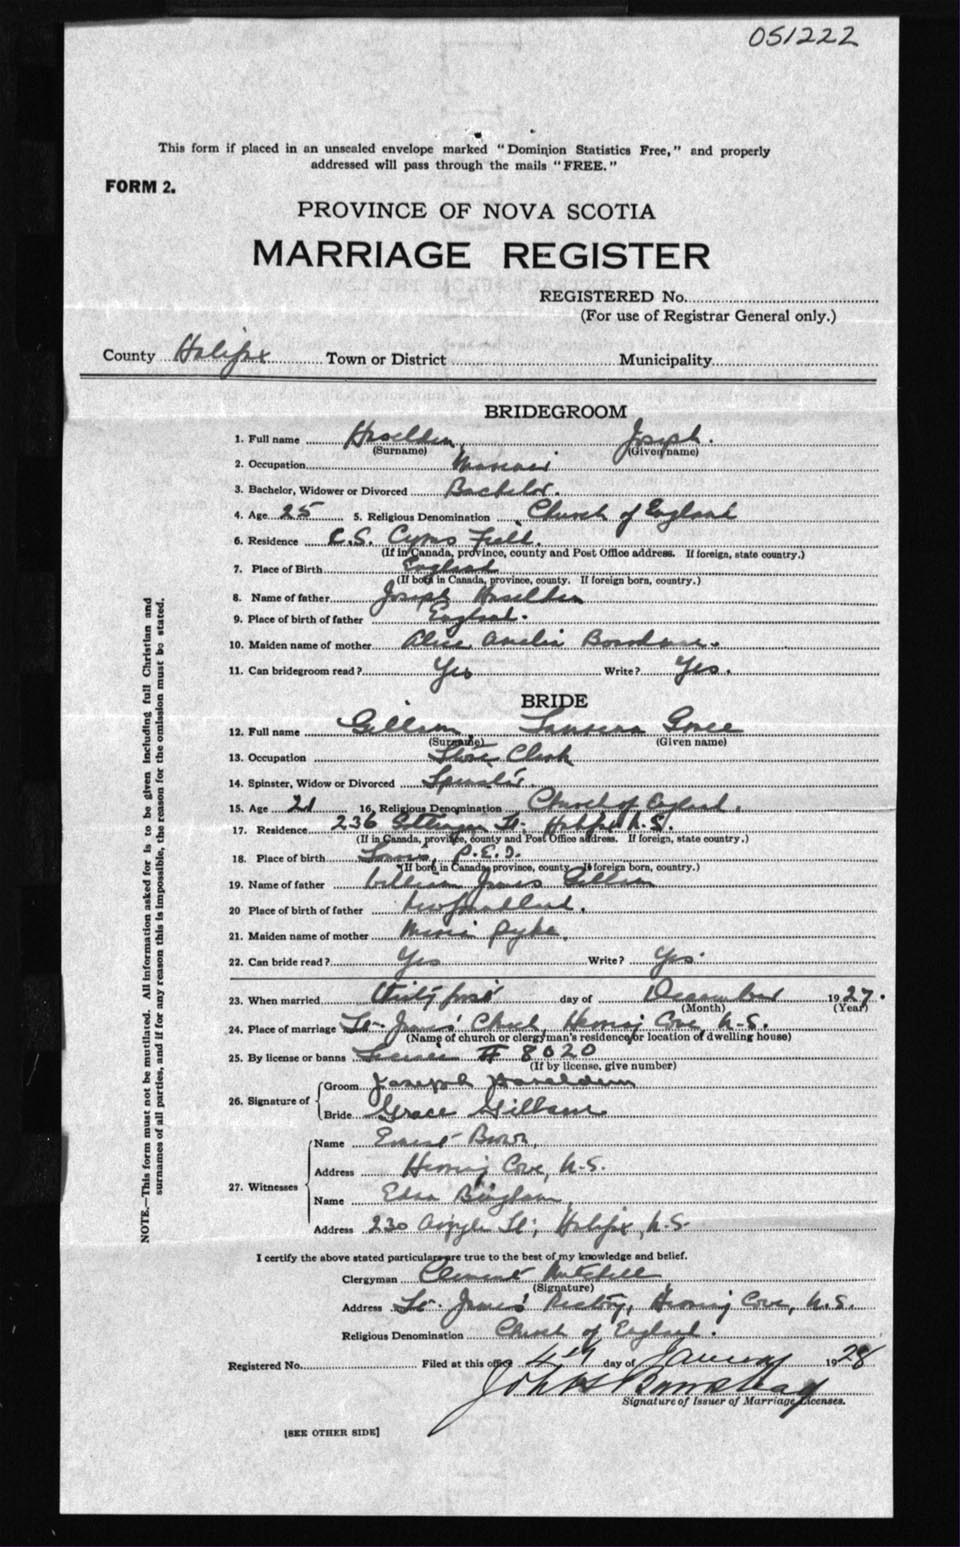 051222
This form if placed in an unsealed envelope marked "Dominion Statistics Free," and properly
addressed will pass through the mails "FREE."
FORM 2.
PROVINCE OF NOVA SCOTIA
MARRIAGE REGISTER
REGISTERED No.
(For use of Registrar General only.)
County Halifax Town or District Municipality
BRIDEGROOM
1. Full name Haselden, Joseph.
(Surname) (Given name)
2. Occupation Mariner
3. Bachelor, Widower or Divorced Bachelor.
4. Age 25 5. Religious Denomination Church of England
6. Residence C.S. Cyrus Field.
(If in Canada, province, county and Post Office address. If foreign, state country.)
7. Place of Birth England
(If born in Canada, province, county. If foreign born, country.)
8. Name of father Joseph Haselden
9. Place of birth of father England.
10. Maiden name of mother Alice Amelia
11. Can bridegroom read? Yes Write? Yes.
BRIDE
12. Full name Gillam Grace
(Surname) (Given name)
13. Occupation Store Clerk
14. Spinster, Widow or Divorced Spinster
15. Age 21 16. Religious Denomination Church of England.
17. Residence 236 Gottingen St. Halifax N.S.
(If in Canada, province, county and Post Office address. If foreign, state country.)
18. Place of birth Souris, P.E.I.
(If born in Canada, province, county If foreign born, country.)
19. Name of father William James Gillam
20 Place of birth of father Newfoundland.
21. Maiden name of mother Pyke.
22. Can bride read? Yes Write? Yes.
23. When married thirty first day of December 1927.
(Month) (Year)
24. Place of marriage St. James' Church, Herring Cove, N.S.
(Name of church or clergyman's residence, or location of dwelling house)
25. By license or banns License # 8020
(If by license, give number)
26. Signature of Groom Joseph Haselden
Bride Grace Gillam
27. Witnesses Name Ernest Brown,
Address Herring Cove, N.S.
Name Edna Bingham,
Address 230 Argyle St., Halifax, N.S.
I certify the above stated particulars are true to the best of my knowledge and belief.
Clergyman Clement Mitchell
(Signature)
Address St. James' Rectory, Herring Cove, N.S.
Religious Denomination Church of England.
Registered No. Filed at this office 4th day of January 1928
John H
Signature of Issuer of Marriage Licenses.
[SEE OTHER SIDE]
NOTE.—This form must not be mutilated. All information asked for is to be given including full Christian and
surnames of all parties, and if for any reason this is impossible, the reason for the omission must be stated.